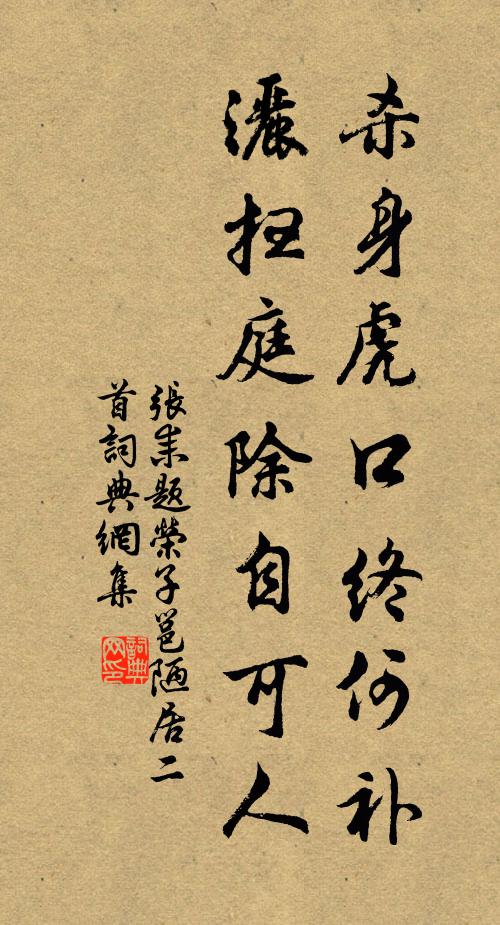 杀身虎口终何补
灑扫庭除自可人
張耒題榮子邕陋居二
首詞典網集
詞典
网印